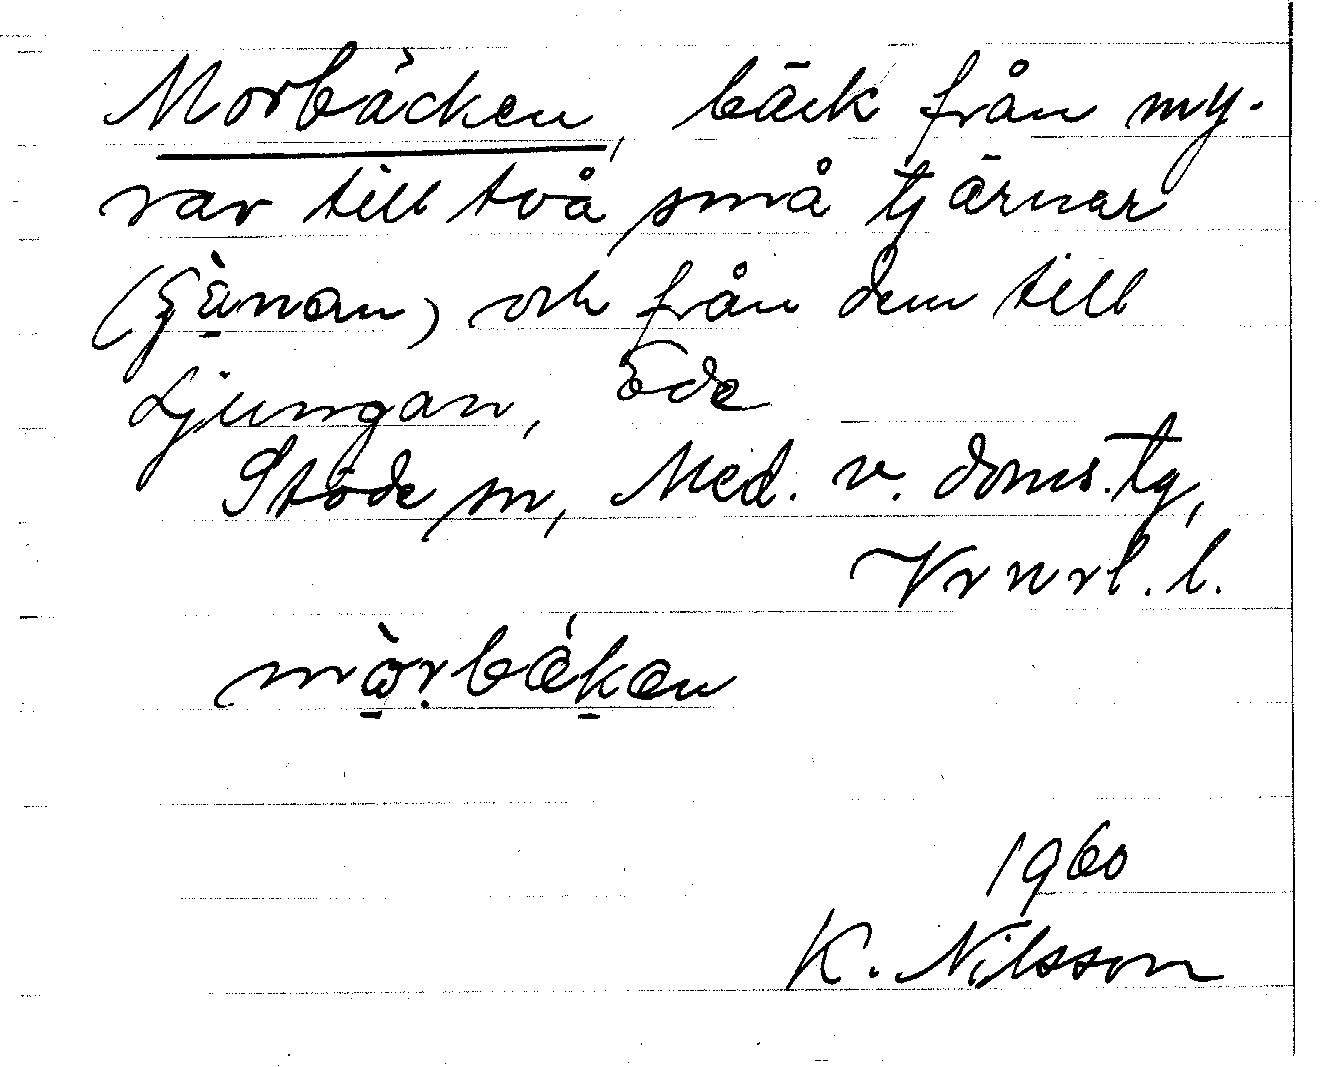 Morbäcken, bäck från my-
rar till två små tjärnar
och från dem till
Ljungan, Ede
Stöde sn, Med. v. doms. tg,
Vrnrl. l.
mòrbäkan
1960
K. Nilsson